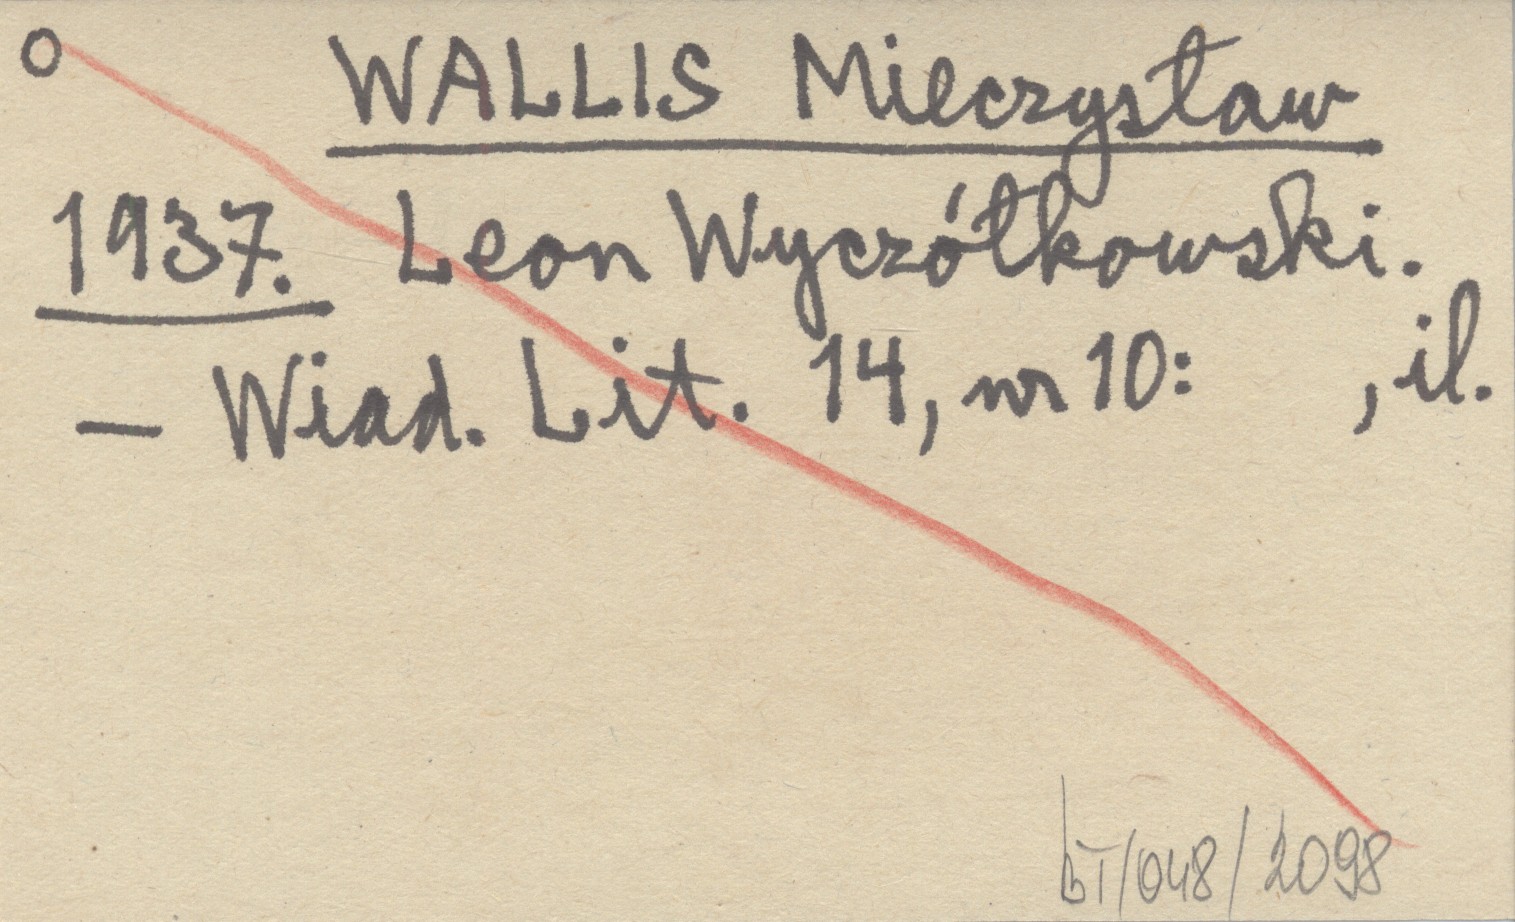 O WALLIS Mieczysław
1937. Leon Wyczółkowski.
— Wiad. Lit. 14, nr 10: , il.
BT/048/2098